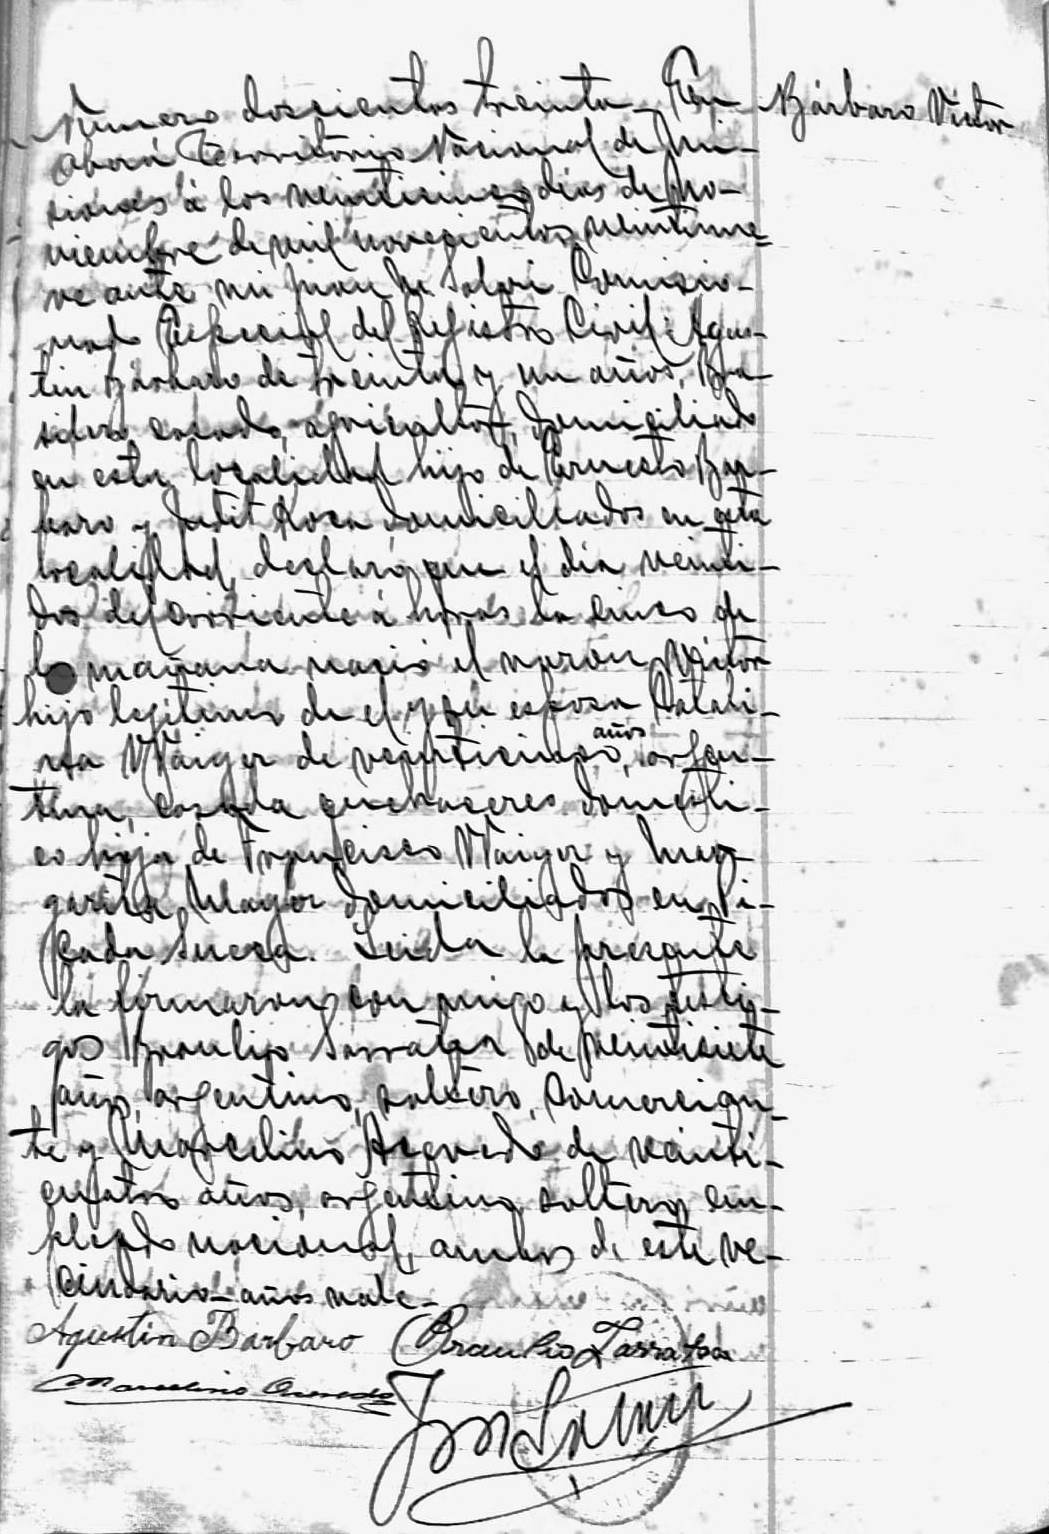 Número doscientos treinta - En
Bárbaro Victor
Oberá Territorio Nacional de Mi-
siones á los veinticinco dias de No-
viembre de mil novecientos veintinue-
ve ante mi Juan de Comisio-
nado Especial del Registro Civil: Agus-
tin Bárbaro de treinta y un años, Bra-
silero, casado, agricultor, domiciliado
en esta localidad hijo de Ernesto Bár-
baro y Judit Rosa domiciliados en esta
localidad, declaró que el dia veinti-
dos del corriente á horas la cinco de
la mañana nació el varon Victor
hijo legitimo de el y su esposa Catali-
na Maiger de veinticinco años, argen-
tina, casada quehaceres domésti-
co hija de Francisco Maiger y Mar-
garita Mayer domiciliados en Pi-
cada Sueca. Leida la presente
la firmaron con migo y los testi-
gos Braulio Sarratea de veintisiete
años, argentino, soltero, Comercian-
te y Marcelino Acevedo de veinti-
cuatro años, argentino, soltero, em-
pleado nacional, ambos de este ve-
cindario - años vale -
Agustin Bárbaro Braulio Sarratea
Marcelino